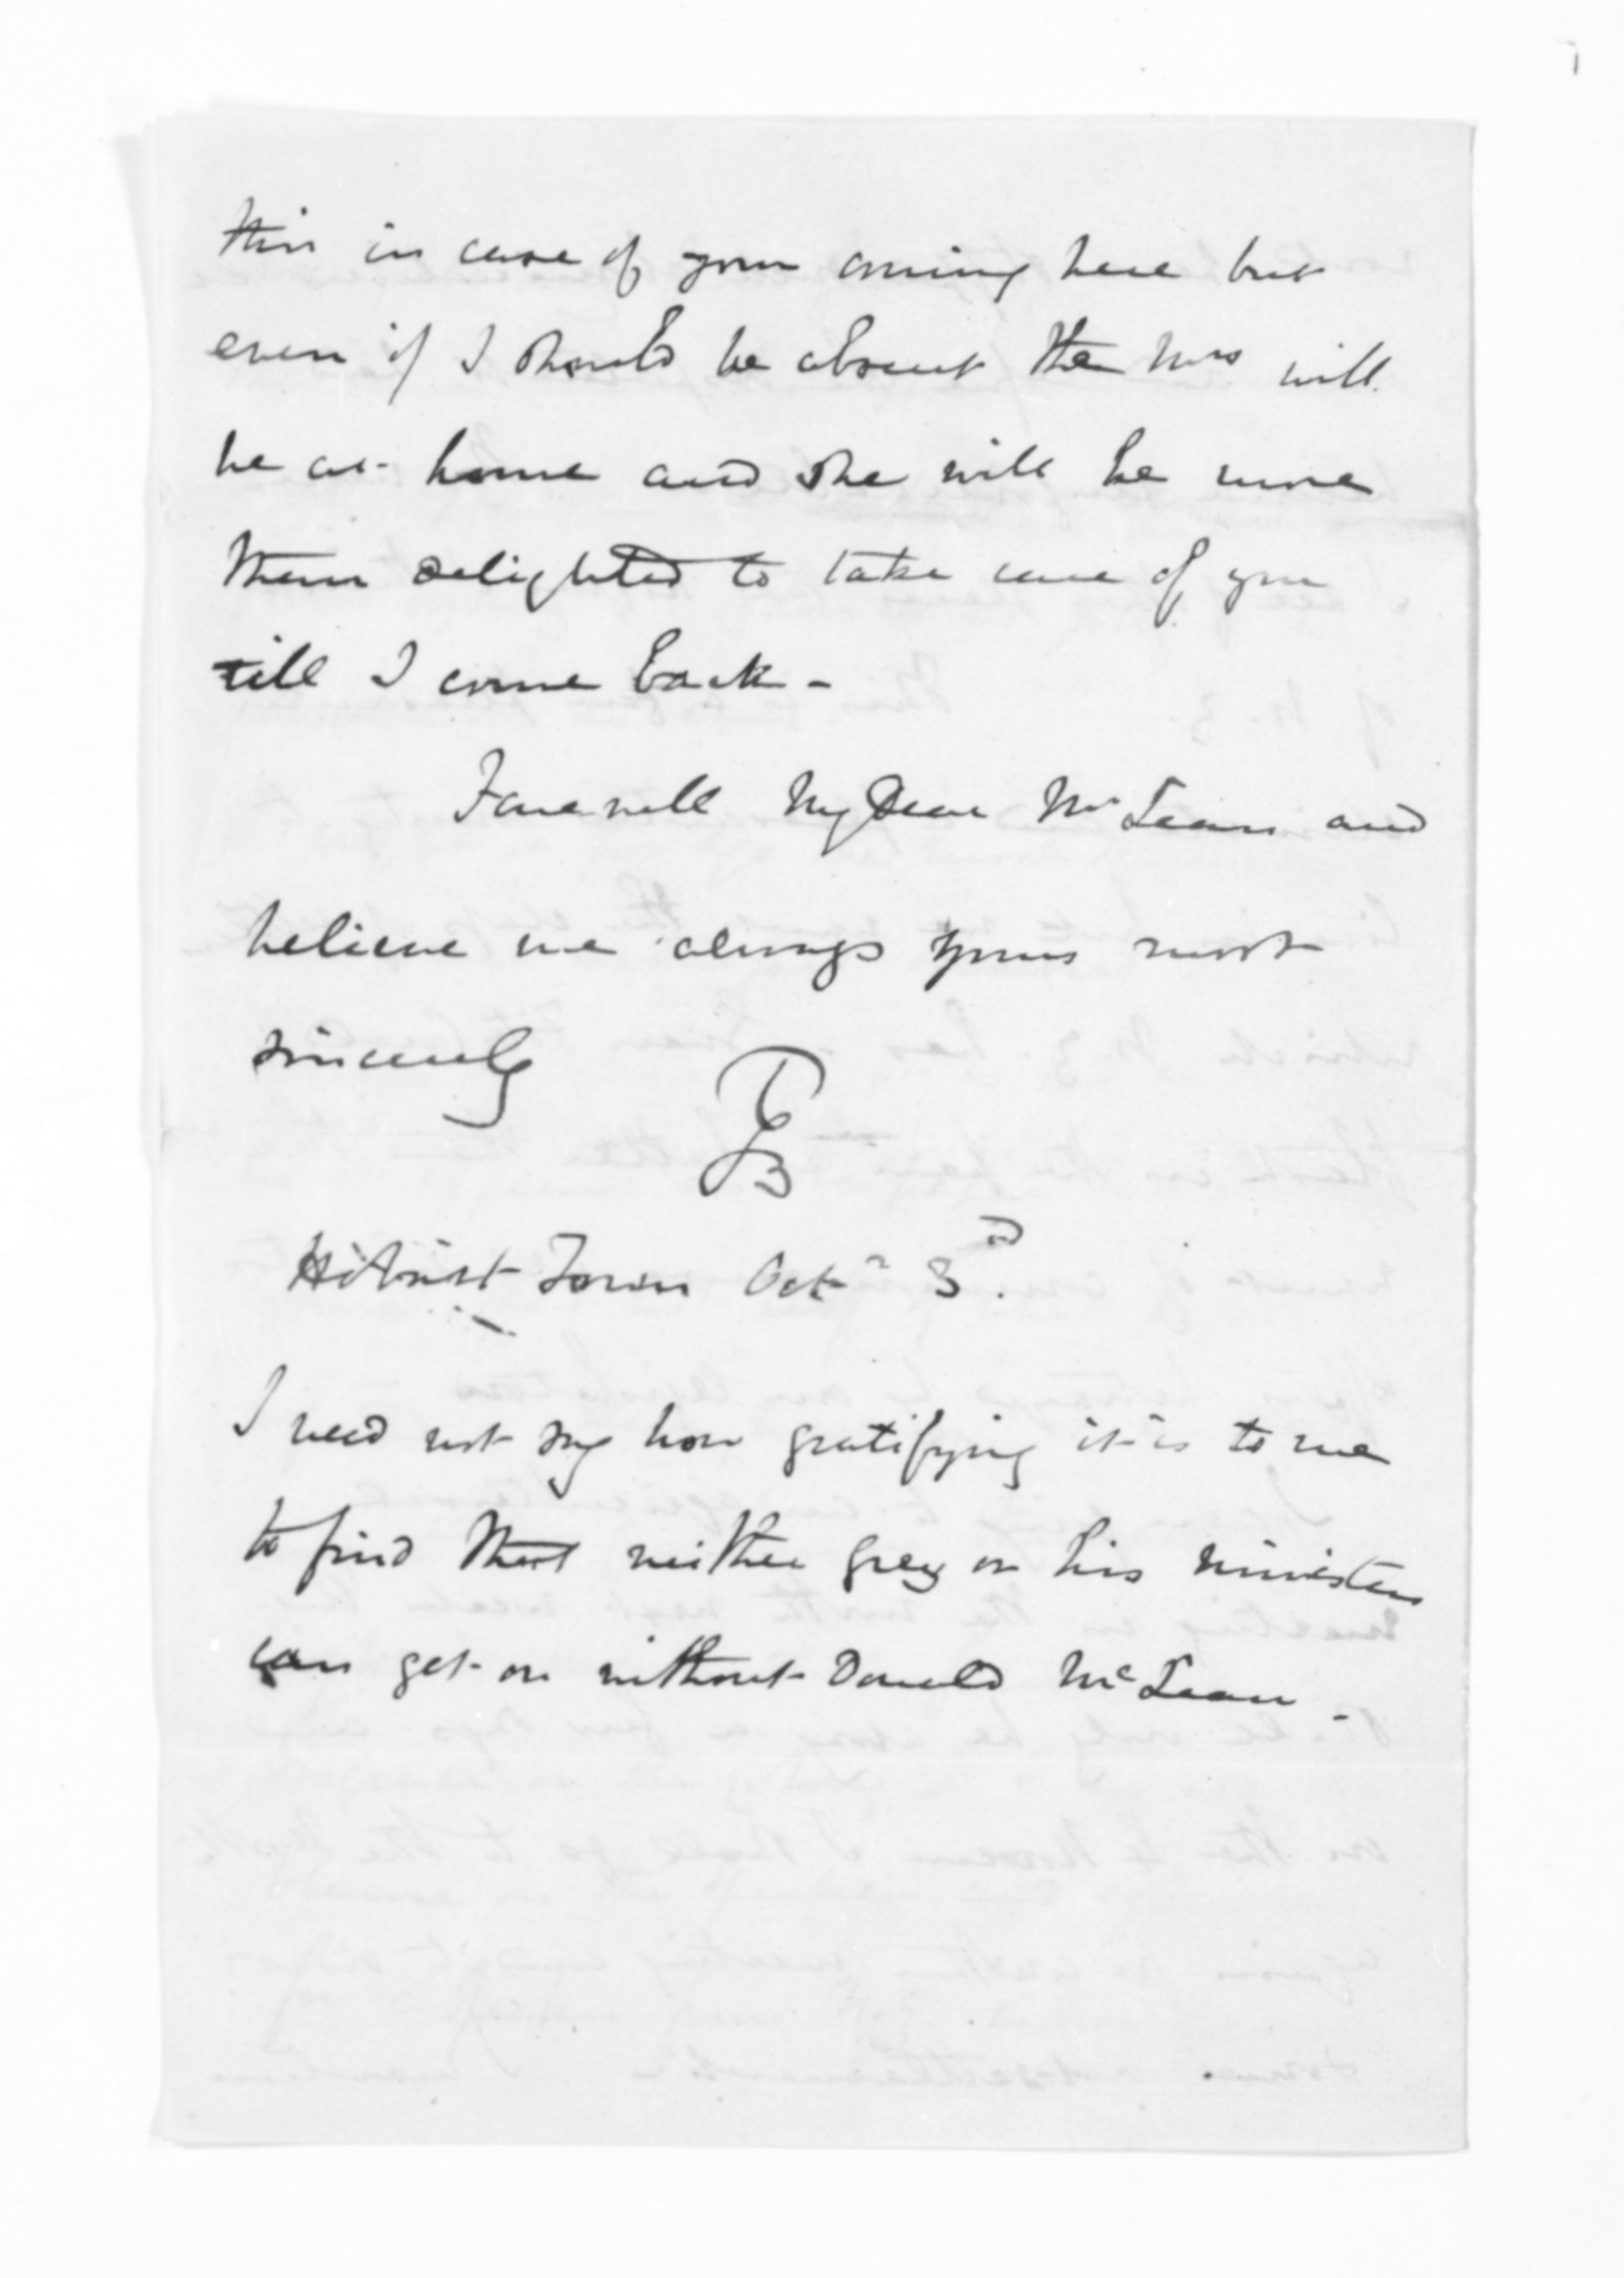 this in case of your coming here but
even if I should be absent the Mrs will
be at home and she will be more
than delighted to take care of you
till I come back -
Farewell My Dear McLean and
believe me always yours most
sincerely
Hobart Town Octr 3rd.
I need not say how gratifying it is to me
to find that neither Grey or his ministers
can get on without Donald McLean -